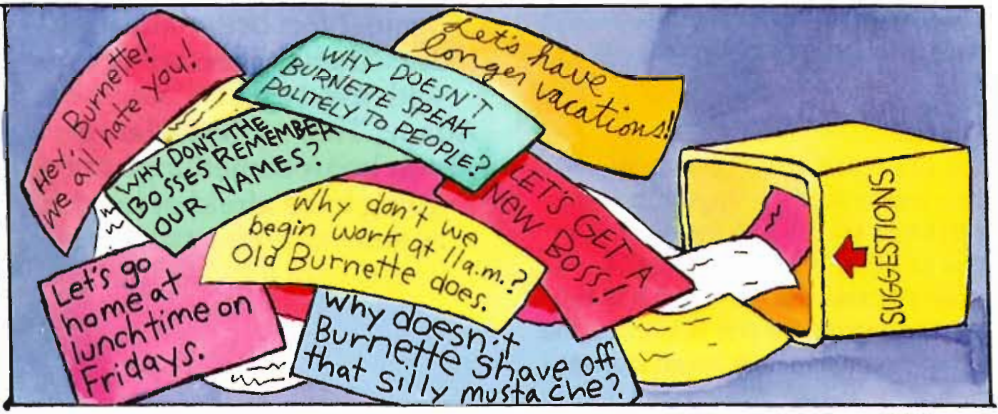 Hey, Burnette!
We all hate you!
WHY DOESN'T
BURNETTE SPEAK
POLITELY TO PEOPLE?
Let's have
longer vacations!
WHY DON'T THE
BOSSES REMEMBER
OUR NAMES?
LET'S GET A
NEW BOSS!
Why don't we
begin work at 11a.m.?
Old Burnette does.
Let's go
home at
lunchtime on
Fridays.
Why doesn't
Burnette shave off
that silly mustache?
SUGGESTIONS